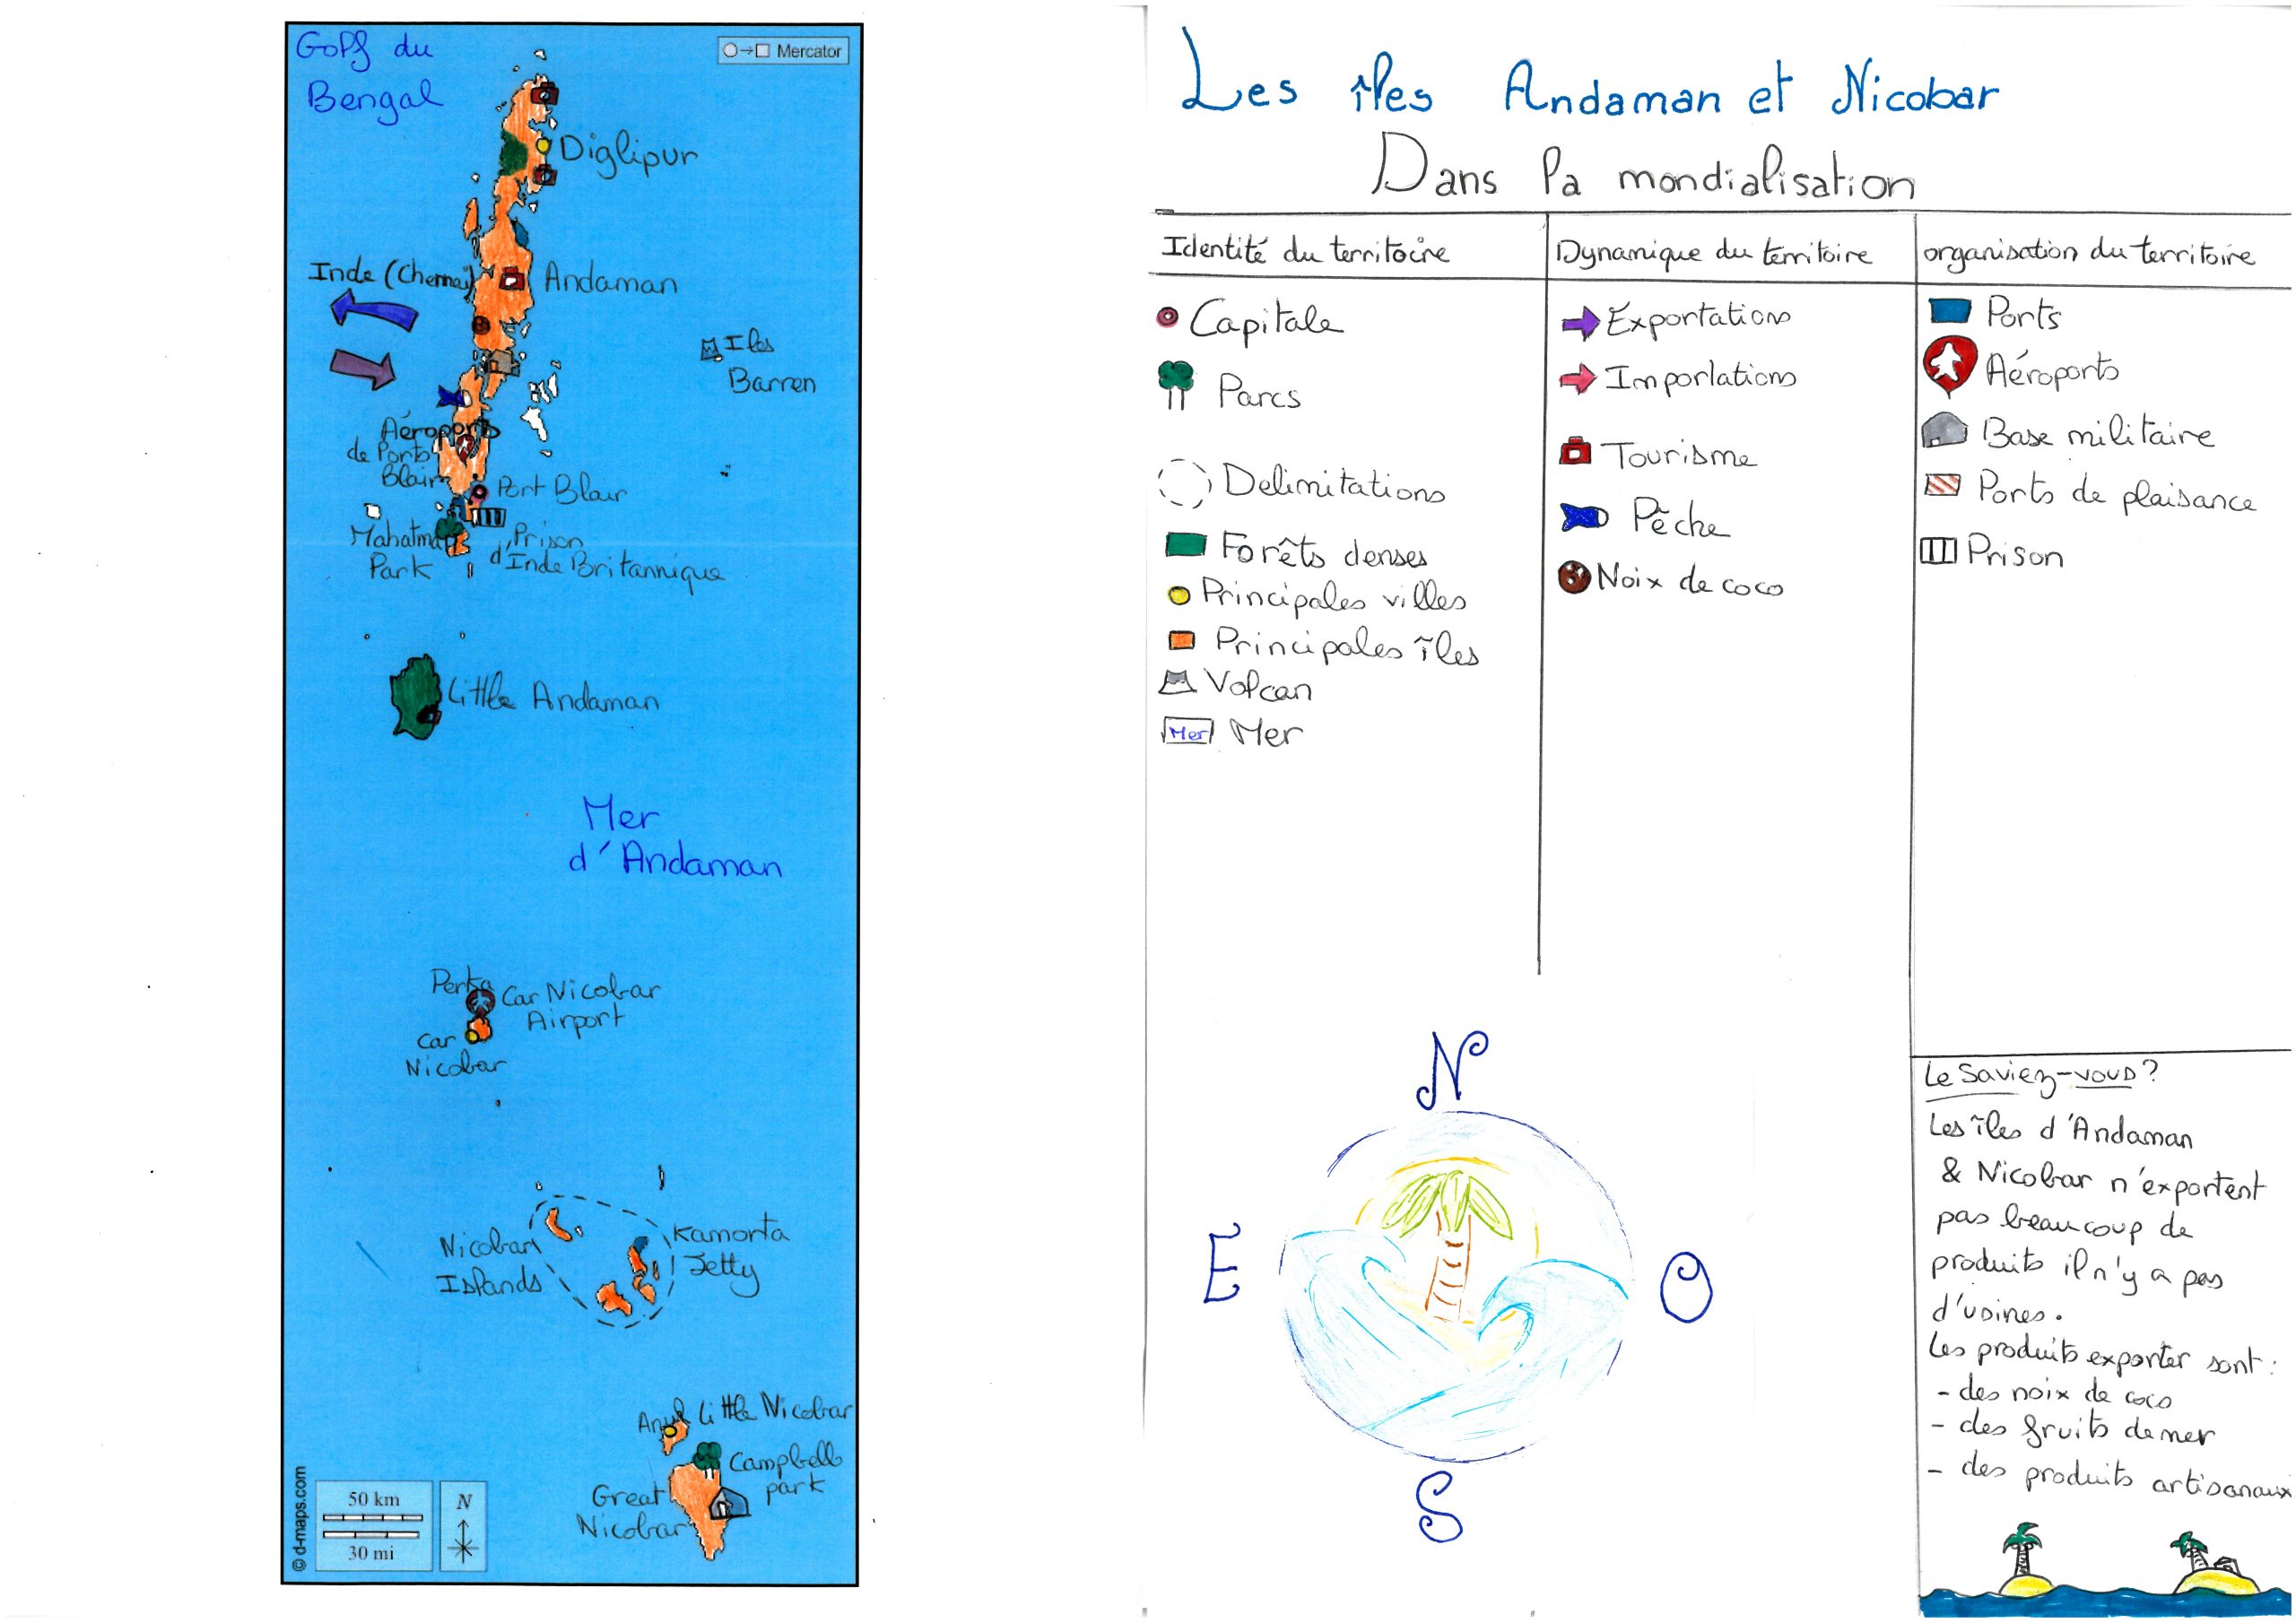 Golf du
Bengal
Mercator
Diglipur
Inde (Chennai)
Andaman
Iles
Barren
Aéroports
de Ports
Blair
Port Blair
Mahatma
Park
Prison
d'Inde Britannique
Little Andaman
Mer
d'Andaman
Perka
Car Nicobar
Airport
Car
Nicobar
Nicobar
Islands
Kamorta
Jetty
Little Nicobar
Campbell
park
Great
Nicobar
50 km
30 mi
N
© d-maps.com
Les îles Andaman et Nicobar
Dans la mondialisation
Identité du territoire
Capitale
Parcs
Delimitations
Forêts denses
Principales villes
Principales îles
Volcan
Mer Mer
Dynamique du territoire
Exportations
Importations
Tourisme
Pêche
Noix de coco
organisation du territoire
Ports
Aéroports
Base militaire
Ports de plaisance
Prison
N
E
O
S
Le saviez-vous?
Les îles d'Andaman
& Nicobar n'exportent
pas beaucoup de
produits il n'y a pas
d'usines.
Les produits exporter sont :
- des noix de coco
- des fruits de mer
- des produits artisanaux